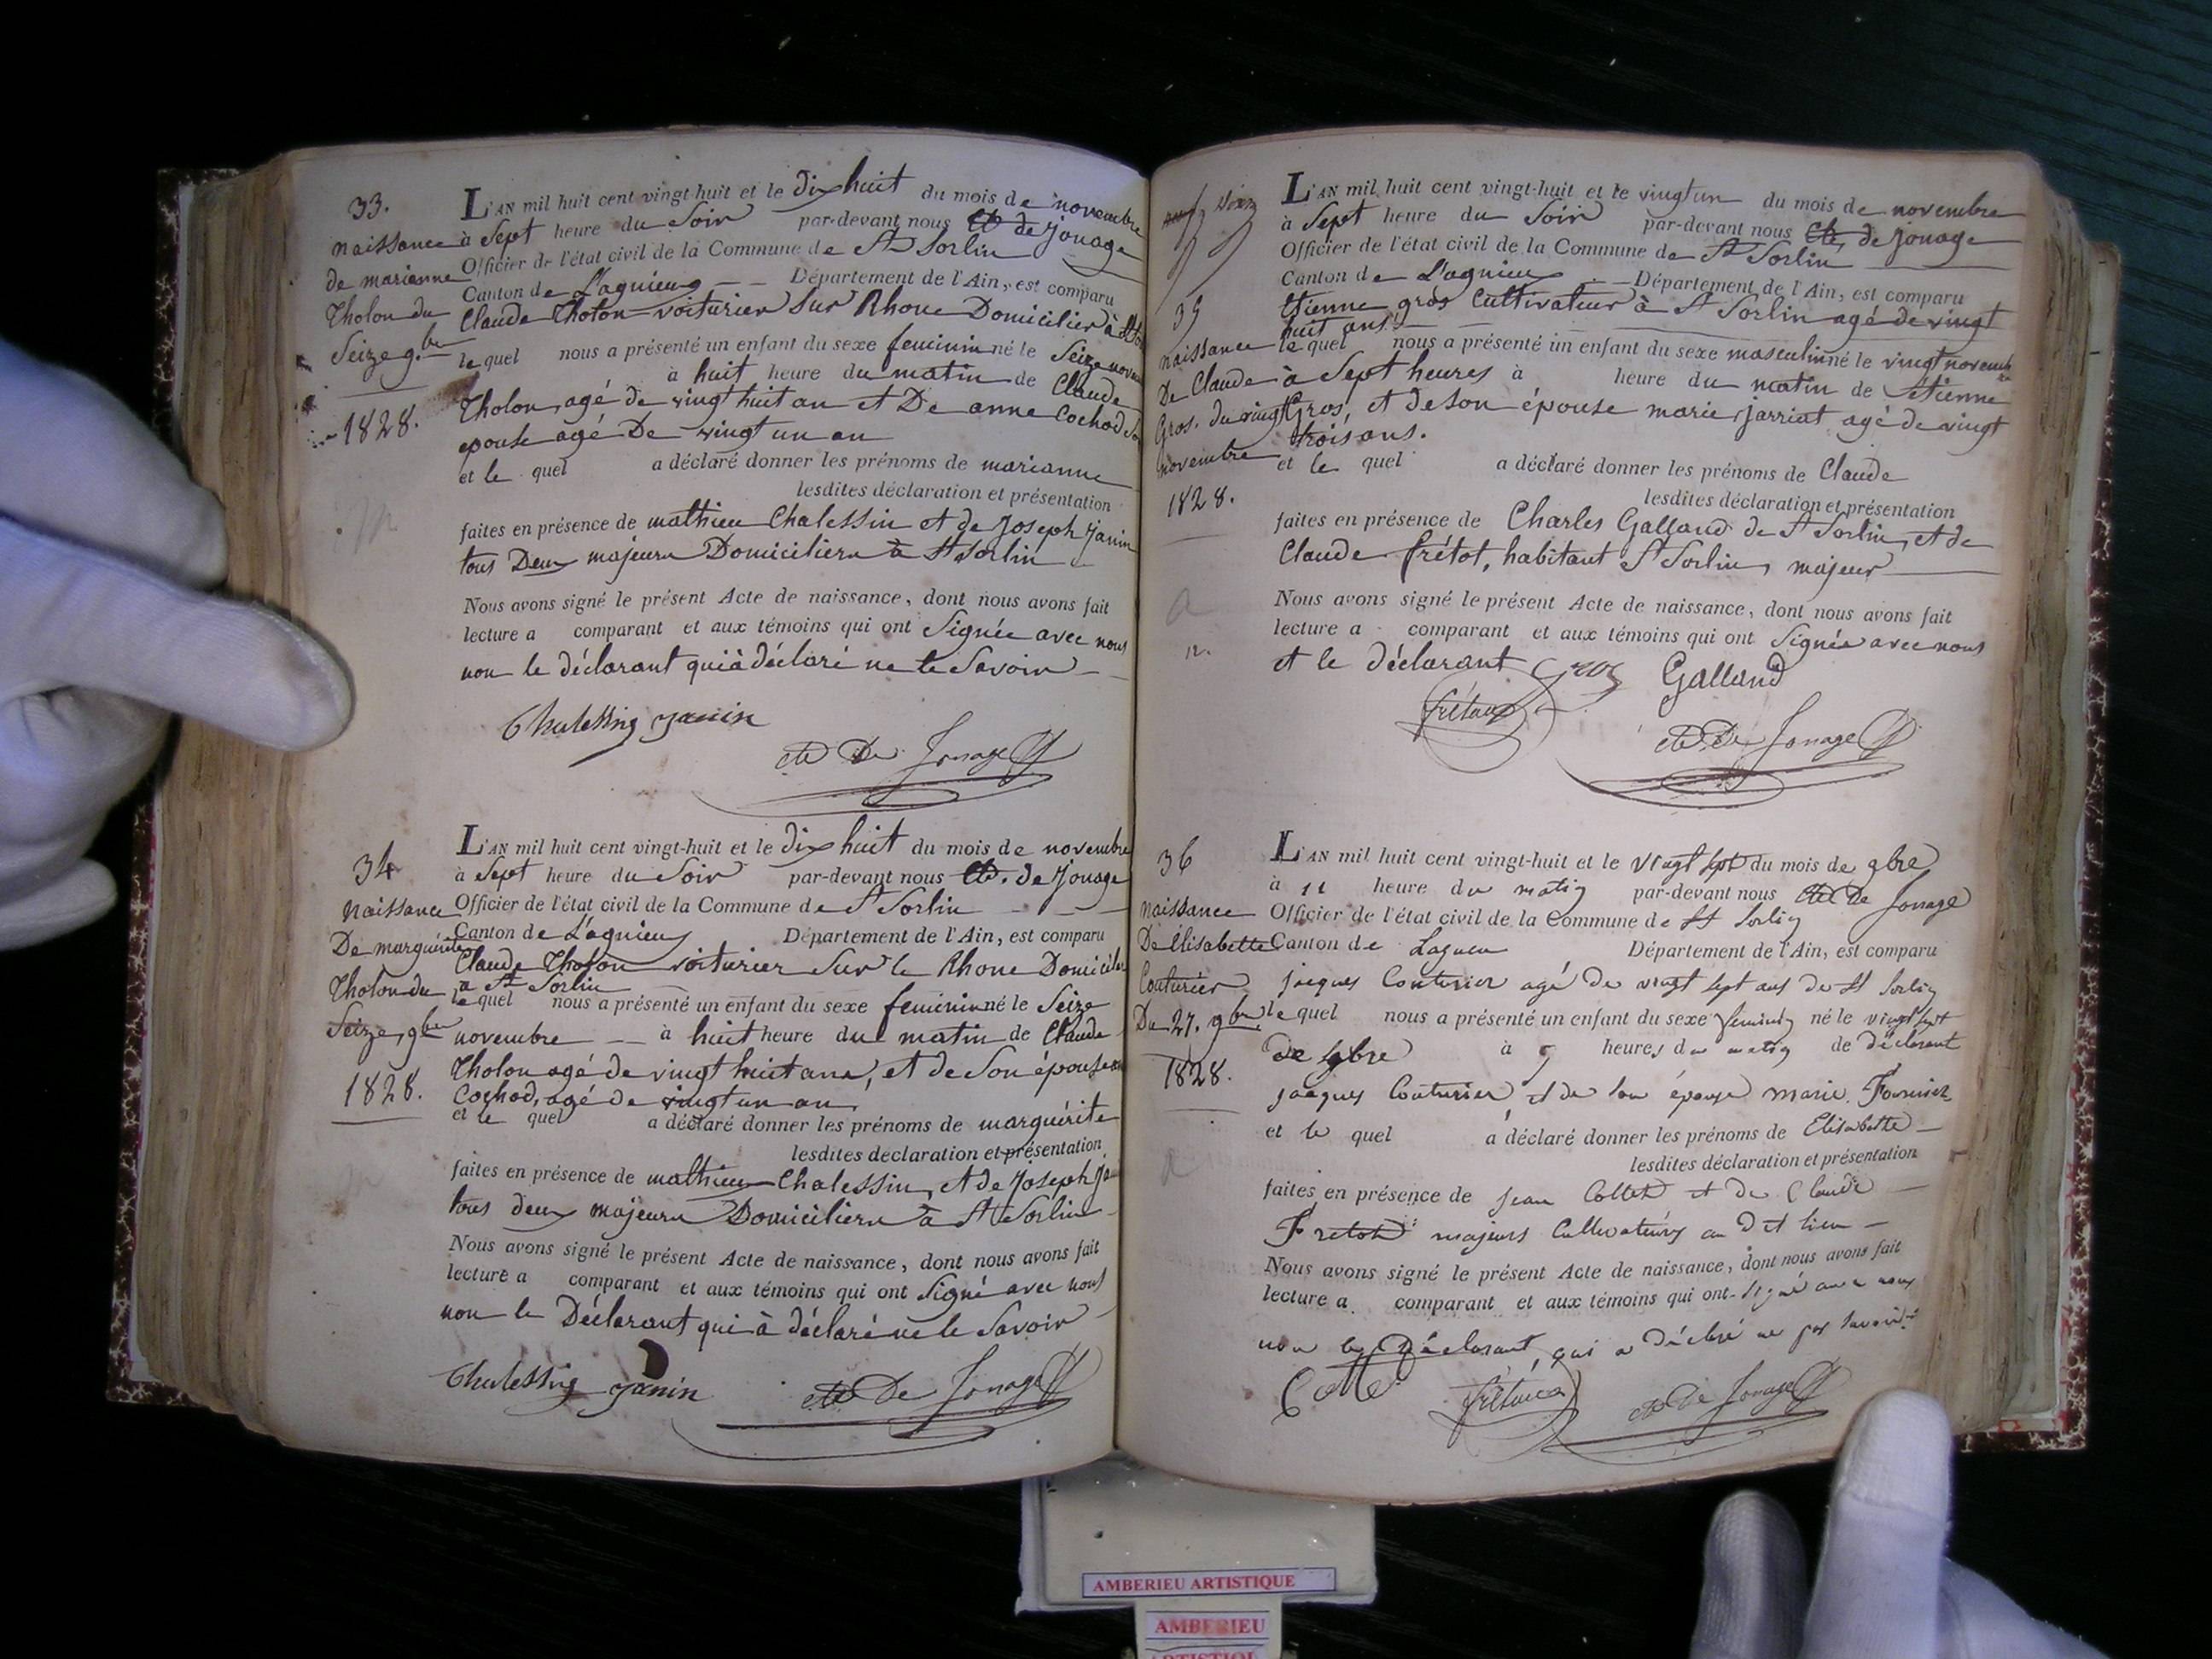 33.
naissance
de marianne
Tholon du
Seize 9.bre
1828.
L'AN mil huit cent vingt-huit et le dix huit du mois de novembre
à Sept heure du Soir par-devant nous Cte de Jonage
Officier de l'état civil de la Commune de St Sorlin
Canton de L'agnieux Département de l'Ain, est comparu
Claude Tholon voiturier Sur Rhone Domicilier à
le quel nous a présenté un enfant du sexe feminin né le Seize
à huit heure du matin de Claude
Tholon, agé de vingt huit an et De anne Cochod
epouse agé De vingt un an
et le quel a déclaré donner les prénoms de marianne
lesdites déclaration et présentation
faites en présence de mathieu Chalessin et de Joseph Janin
tous Deux majeurs Domiciliers à St Sorlin
Nous avons signé le présent Acte de naissance, dont nous avons fait
lecture a comparant et aux témoins qui ont Signée avec nous
non le déclarant qui à déclaré ne le Savoir
Chalessing Janin
cte De Jonage
34
Naissance
De marguérite
Tholon du
Seize 9bre
1828.
L'AN mil huit cent vingt-huit et le dix huit du mois de novembre
à Sept heure du Soir par-devant nous Cte. de Jonage
Officier de l'état civil de la Commune de St Sorlin
Canton de L'agnieux Département de l'Ain, est comparu
Claude Tholon voiturier Sur le Rhone
a St Sorlin
le quel nous a présenté un enfant du sexe feminin né le Seize
novembre à huit heure du matin de Claude
Tholon agé de vingt huit ans, et de Son épouse
Cochod, agé de vingt un an,
et le quel a déclaré donner les prénoms de marguérite
lesdites declaration et présentation
faites en présence de mathieu Chalessin, et de Joseph
tous deux majeurs Domiciliers à St Sorlin
Nous avons signé le présent Acte de naissance, dont nous avons fait
lecture a comparant et aux témoins qui ont Signé avec nous
non le Déclarant qui à déclaré ne le Savoir
Chalessing Janin cte De Jonage
35
naissance
De Claude
Gros. du vingt
novembre
1828.
L'AN mil huit cent vingt-huit et le vingt un du mois de novembre
à Sept heure du Soir par-devant nous Cte, de Jonage
Officier de l'état civil de la Commune de St Sorlin
Canton de L'agnieux Département de l'Ain, est comparu
Etienne gros Cultivateur à St Sorlin agé de vingt
huit ans.
le quel nous a présenté un enfant du sexe masculin né le vingt novembre
à Sept heures à heure du matin de Etienne
Gros, et de Son épouse marie jarriat agé de vingt
trois ans.
et le quel a déclaré donner les prénoms de Claude
lesdites déclaration et présentation
faites en présence de Charles Galland de St Sorlin, et de
Claude frétot, habitant St Sorlin, majeur
Nous avons signé le présent Acte de naissance, dont nous avons fait
lecture a comparant et aux témoins qui ont Signés avec nous
et le déclarant Gros Galland
cte De Jonage
36
naissance
De élisabette
Couturier
Du 27. 9bre
1828.
L'AN mil huit cent vingt-huit et le vingt sept du mois de 9bre
à 11 heure du matin par-devant nous cte De Jonage
Officier de l'état civil de la Commune de St Sorlin
Canton de Lagnieu Département de l'Ain, est comparu
jacques Couturier agé De vingt sept ans de St Sorlin
le quel nous a présenté un enfant du sexe féminin né le vingt sept
de 9bre à 5 heures du matin de déclarant
jacques Couturier, et de son épouse marie Fournier
et le quel a déclaré donner les prénoms de Elisabette
lesdites déclaration et présentation
faites en présence de jean Collet et de Claude
Fretot majeurs Cultivateurs au Dit lieu
Nous avons signé le présent Acte de naissance, dont nous avons fait
lecture a comparant et aux témoins qui ont signé avec nous
non le Déclarant, qui a Déclaré ne pas savoir
cte De Jonage
AMBERIEU ARTISTIQUE
AMBERIEU
ARTISTIQUE